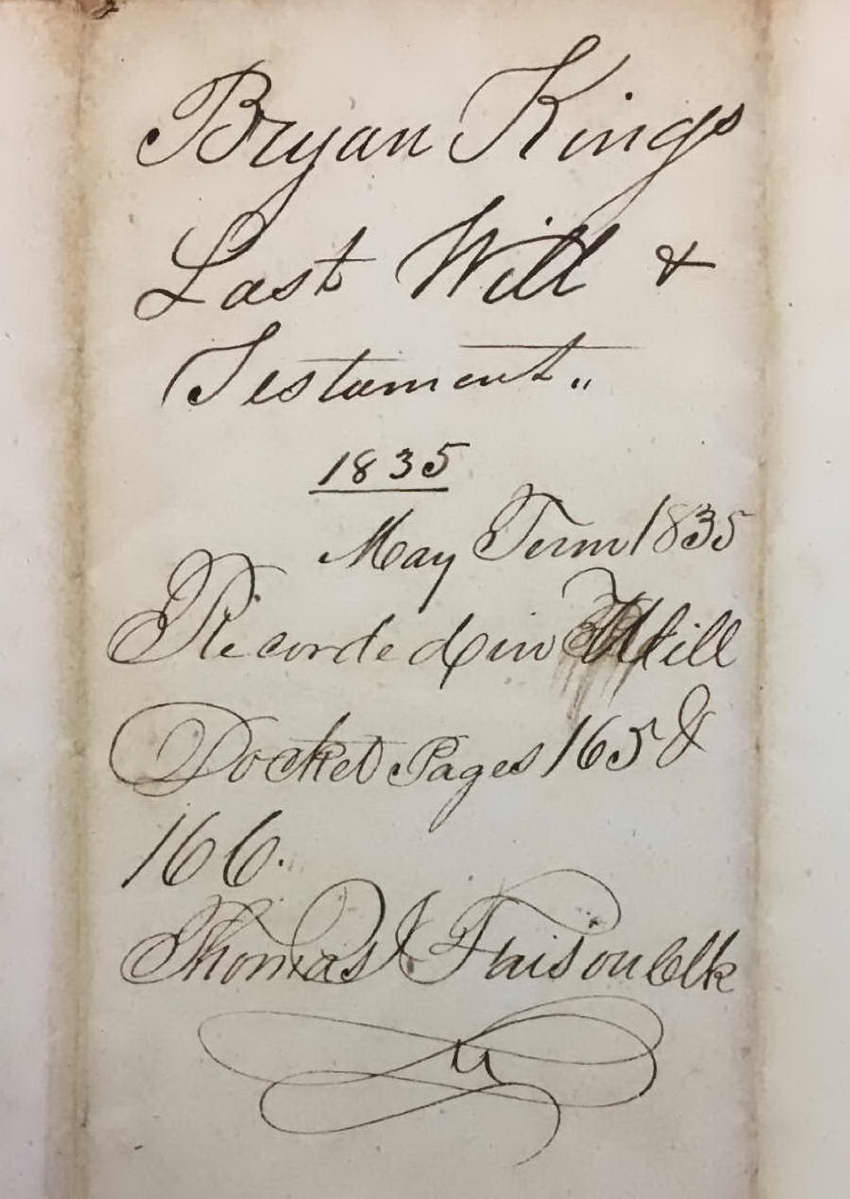 Bryan Kings
Last Will &
Testament „
1835
May Term 1835
Recorded in Will
Docket Pages 165 &
166.
Thomas I Faison Clk